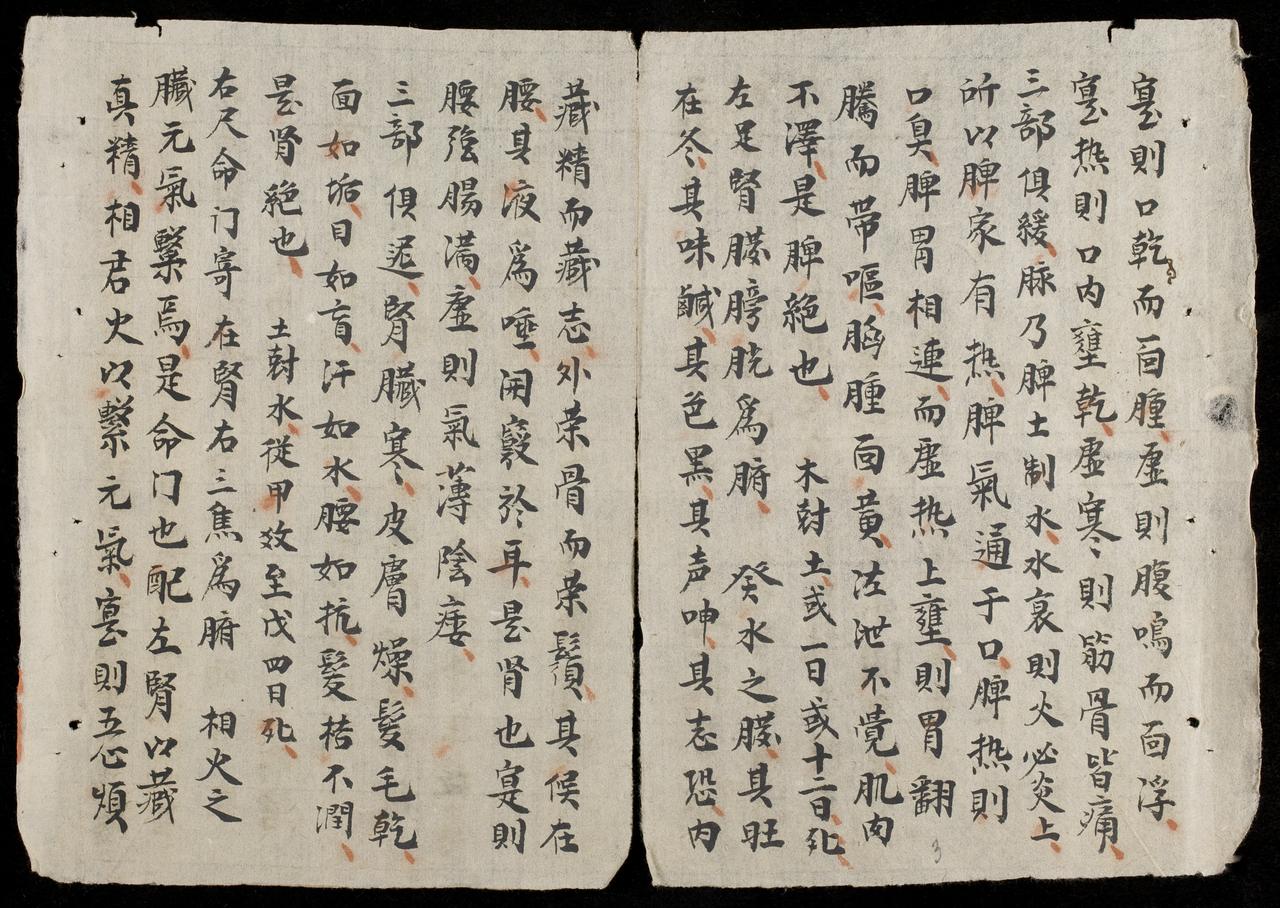 寔則口乾而面腫虛則腹鳴而面浮
寔热則口内壅乾虛寒則筋骨皆痛
三部俱緩脉乃脾土制水水衰則火必炎上
所以脾家有热脾氣通于口脾热則
口臭脾胃相連而虛热上壅則胃翻
騰而带嘔胸腫面黄法泄不觉肌肉
不澤是脾絕也 木尅土或一日或十二日死
左足腎臟膀胱爲腑 癸水之臟其旺
在冬其味鹹其色黑其声呻其志恐内
藏精而藏志外荣骨而荣鬚其候在
腰其液爲唾開竅於耳是肾也寔則
腰強腸满虛則氣薄陰痿
三部俱遲腎臟寒皮膚燥髮毛乾
面如垢目如盲汗如水腰如抗髮楛不潤
是肾絕也 土尅水從甲效至戊四日死
右尺命门寄在腎右三焦爲腑 相火之
臟元氣繫焉是命门也配左腎以藏
真精相君火以繫元氣寔則五心煩
3